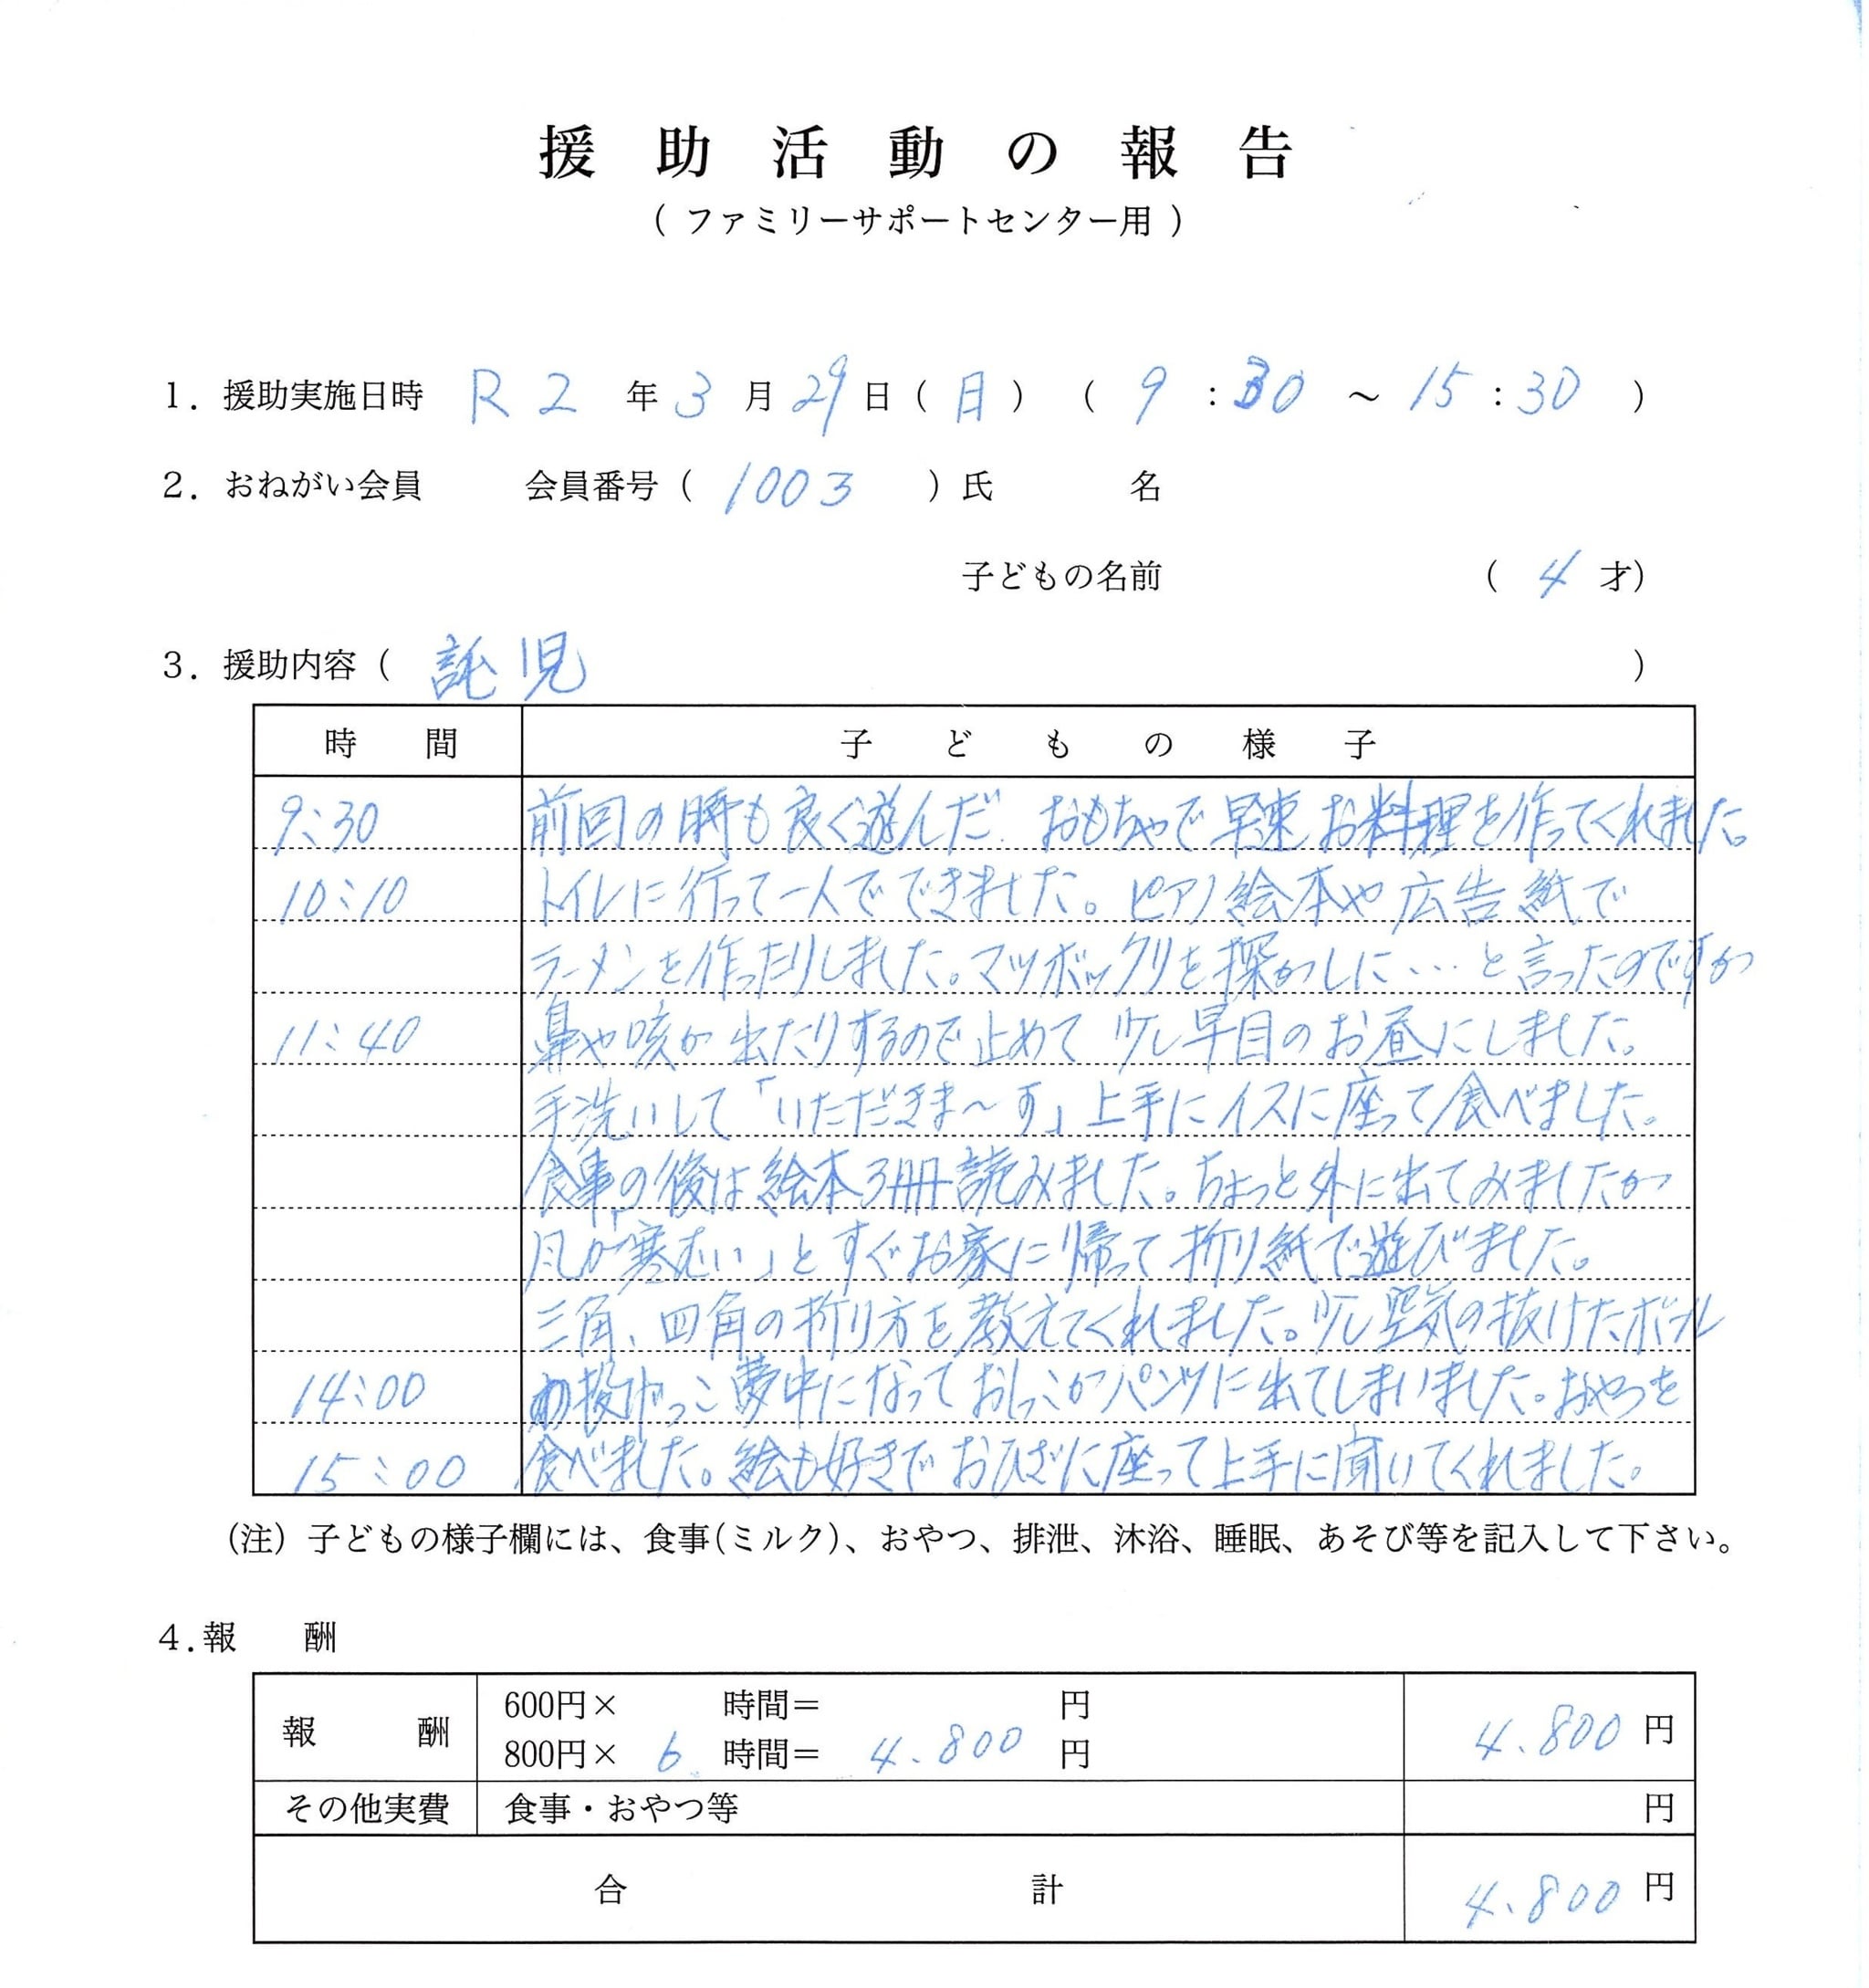 援助活動の報告
（ファミリーサポートセンター用）
1. 援助実施日時 R2年3月29日（日）（9:30～15:30）
2. おねがい会員 会員番号（1003）氏名
子どもの名前 （4才）
3. 援助内容（託児）
時間 子どもの様子
9:30 前回の時も良く遊んだ、おもちゃで早速お料理を作ってくれました。
10:10 トイレに行って一人でできました。ピアノ絵本や広告紙で
ラーメンを作ったりしました。マツボックリを探がしに…と言ったのですが
11:40 鼻や咳が出たりするので止めて少し早目のお昼にしました。
手洗いして「いただきま〜す」上手にイスに座って食べました。
食事の後は絵本3冊読みました。ちょっと外に出てみましたが
「風が寒むい」とすぐお家に帰って折り紙で遊びました。
三角、四角の折り方を教えてくれました。少し空気の抜けたボール
14:00 の投げっこ夢中になっておしっこがパンツに出てしまいました。おやつを
15:00 食べました。絵も好きでおひざに座って上手に聞いてくれました。
（注）子どもの様子欄には、食事（ミルク）、おやつ、排泄、沐浴、睡眠、あそび等を記入して下さい。
4. 報酬
報酬 600円× 時間＝ 円
800円×6時間＝4.800円 4.800円
その他実費 食事・おやつ等 円
合計 4.800円